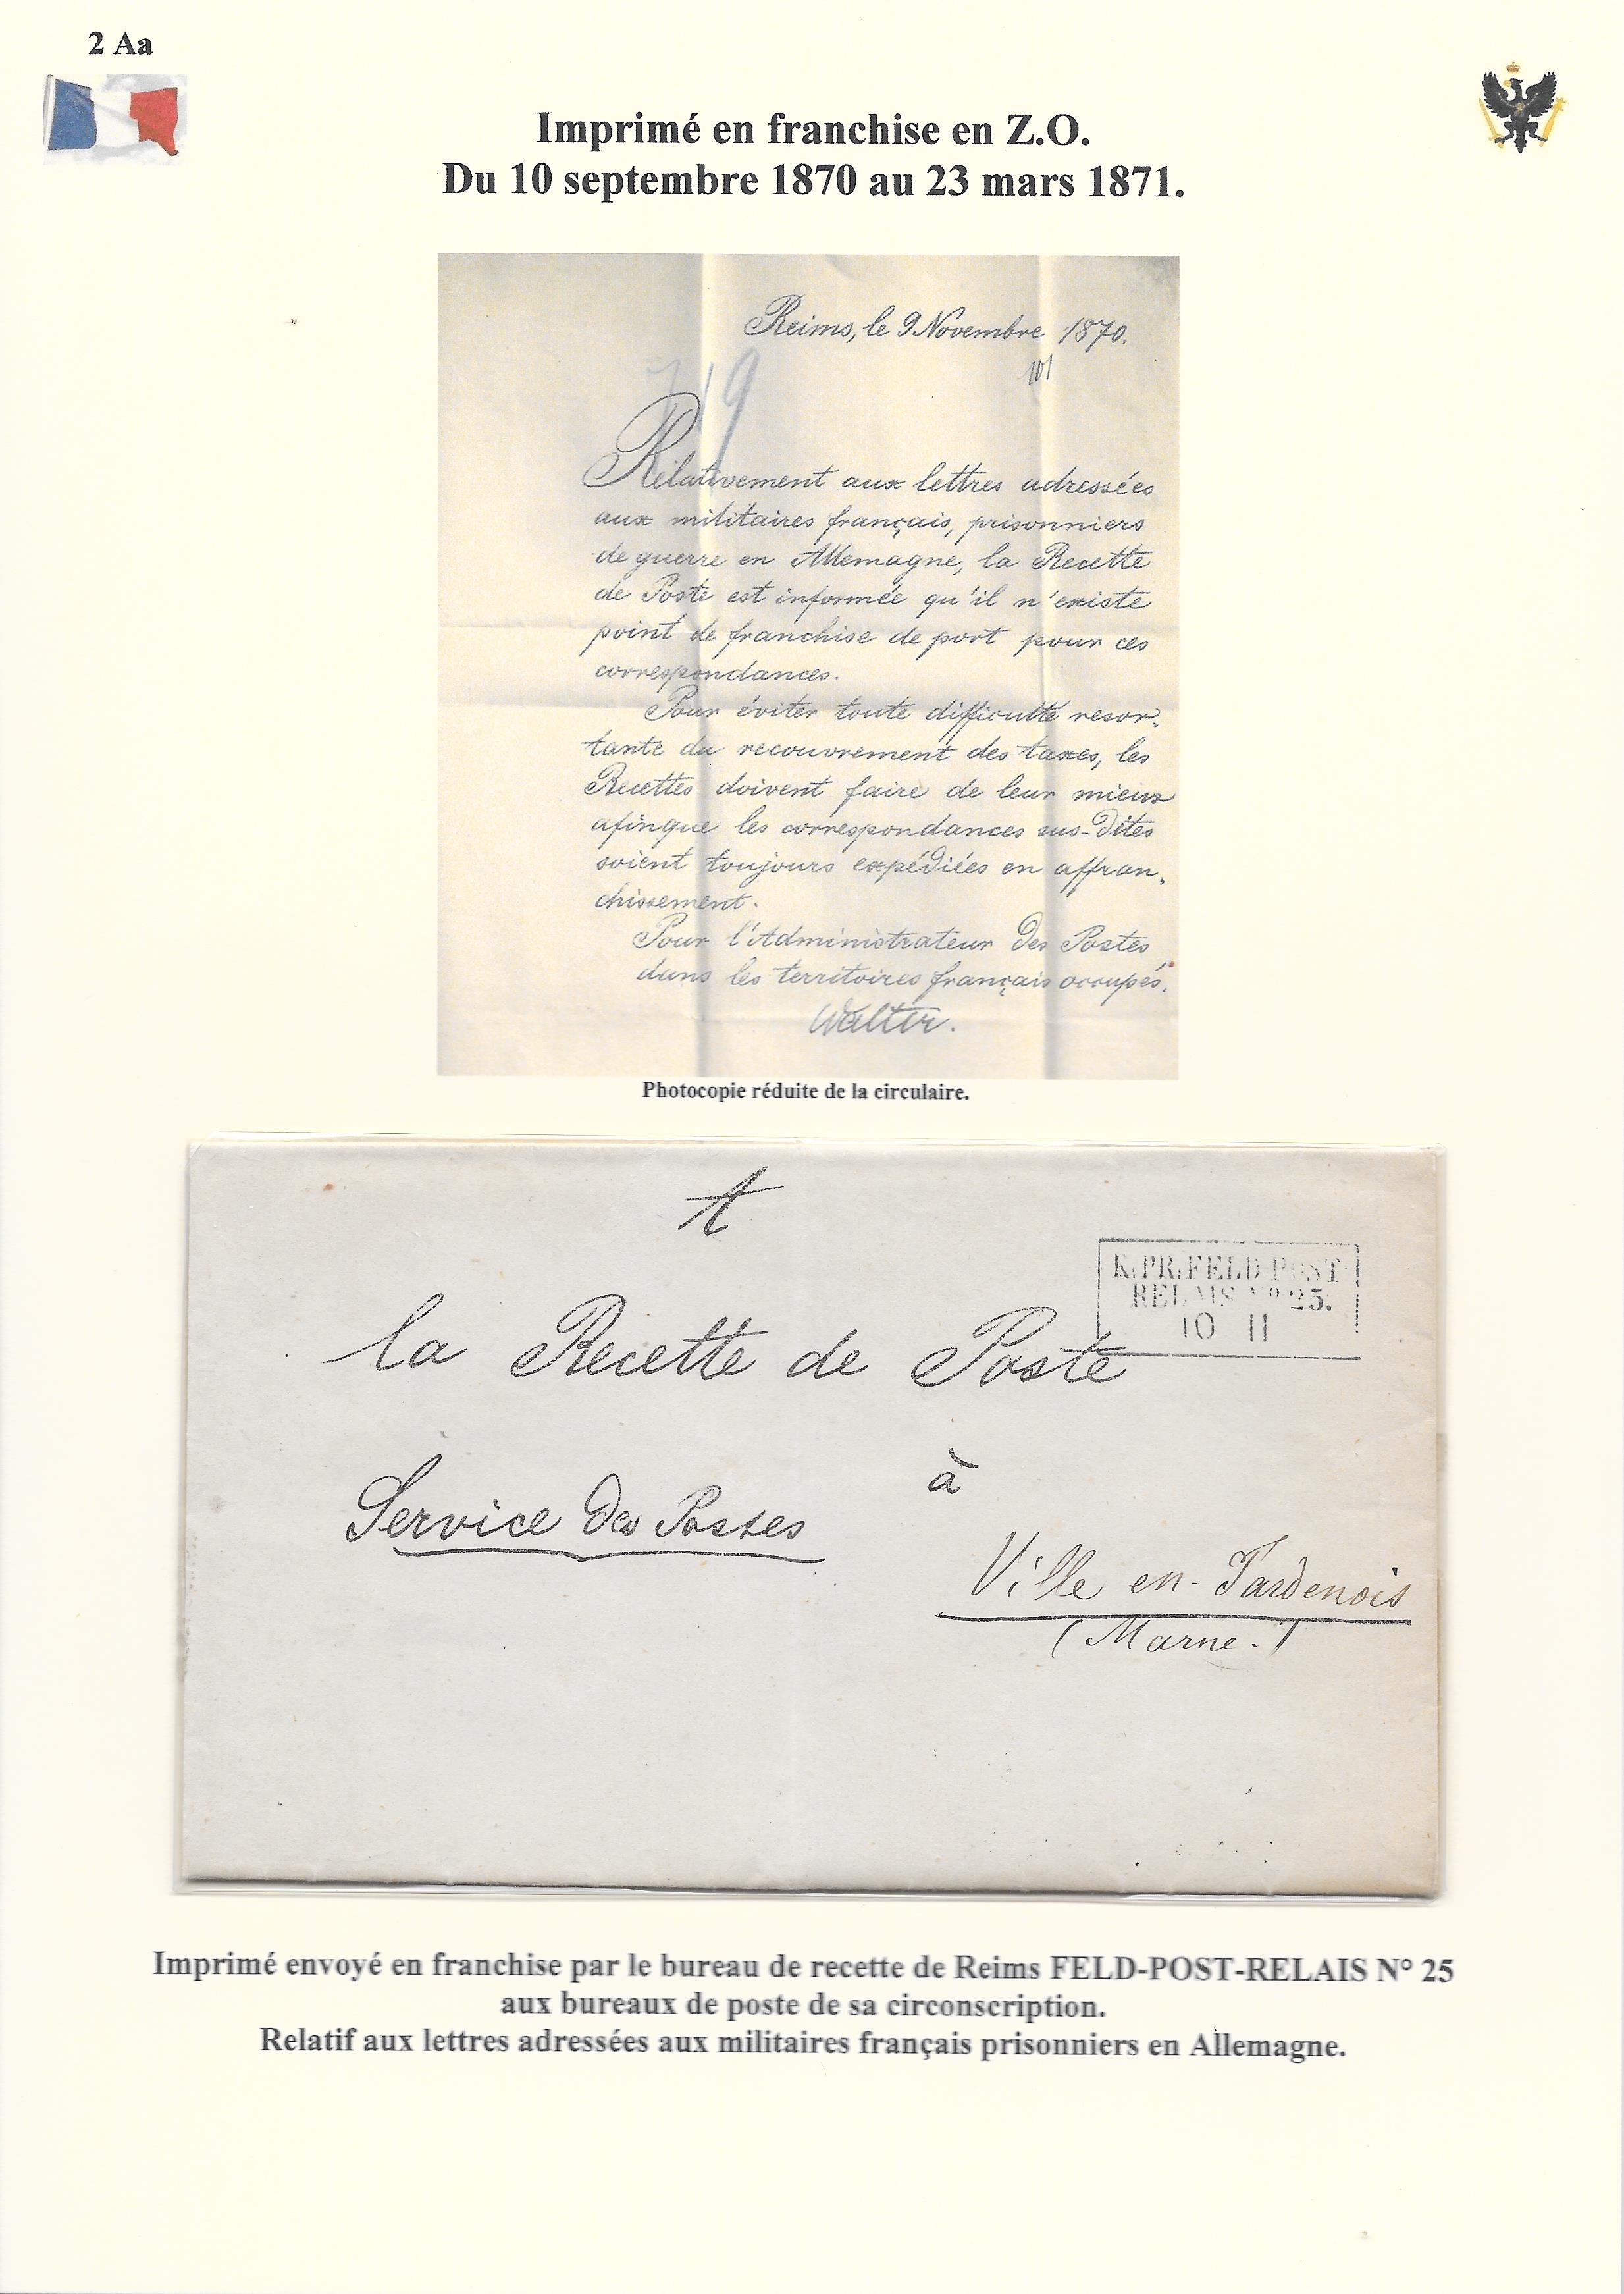 2 Aa
Imprimé en franchise en Z.O.
Du 10 septembre 1870 au 23 mars 1871.
Reims, le 9 Novembre 1870.
101
719
Rélativement aux lettres adressées
aux militaires français, prisonniers
de guerre en Allemagne, la Recette
de Poste est informée qu'il n'existe
point de franchise de port pour ces
correspondances.
Pour éviter toute difficulté resor-
tante du recouvrement des taxes, les
Recettes doivent faire de leur mieux
afinque les correspondances sus-dites
soient toujours expédiées en affran-
chissement.
Pour l'Administrateur des Postes
dans les territoires français occupés.
Walter.
Photocopie réduite de la circulaire.
A
K.PR.FELD POST
RELAIS No 25.
10 11
la Recette de Poste
à
Service des Postes
Ville en-Tardenois
(Marne.)
Imprimé envoyé en franchise par le bureau de recette de Reims FELD-POST-RELAIS N° 25
aux bureaux de poste de sa circonscription.
Relatif aux lettres adressées aux militaires français prisonniers en Allemagne.